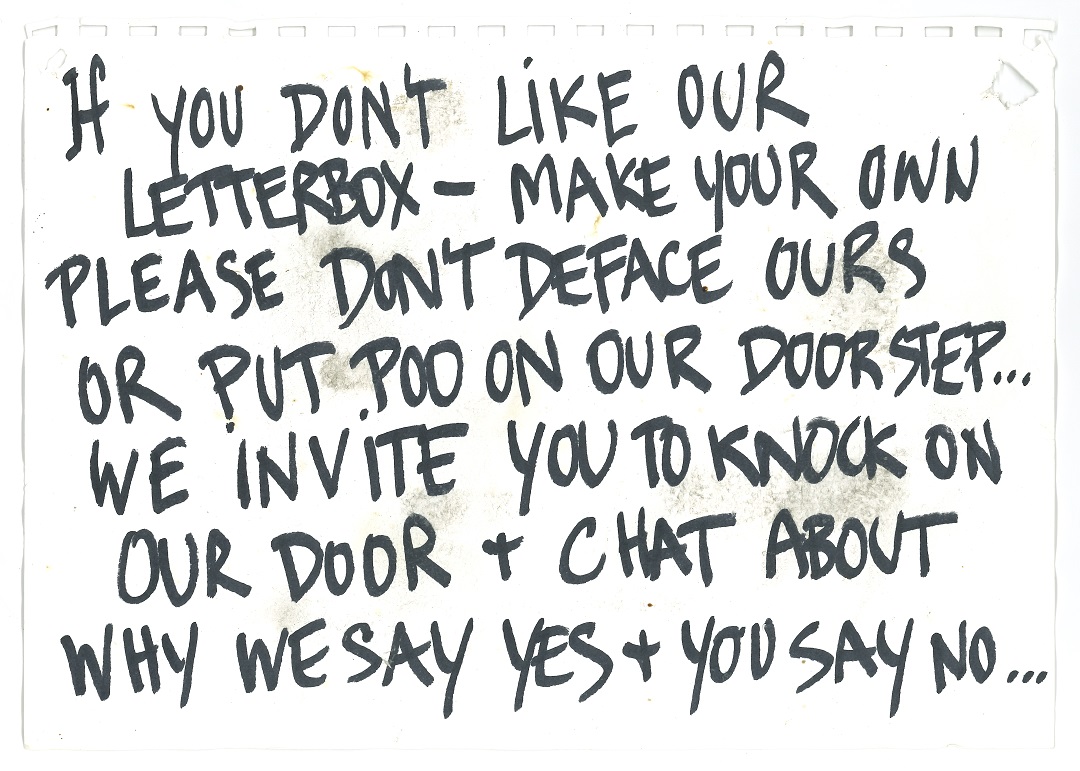 If YOU DON'T LiKE OUR
LETTERBOX – MAKE YOUR OWN
PLEASE DON'T DEFACE OURS
OR PUT POO ON OUR DOORSTEP...
WE iNViTE YOU TO KNOCK ON
OUR DOOR + CHAT ABOUT
WHY WE SAY YES + YOU SAY NO...